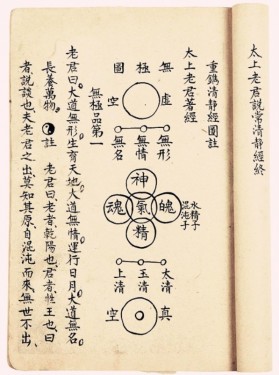 太上老君說常清靜經終
重鐫清靜經圖註
太上老君著經
水精子
混沌子
無極圖
虛
空
無形
無情
無名
神
魄
氣
魂
精
太清
玉清
上清
真
空
無極品第一
老君曰大道無形生育天地大道無情運行日月大道無名
長養萬物 註 老君曰老者乾陽也君者性王也曰
者說談也夫老君之出莫知其原自混沌而來無世不出